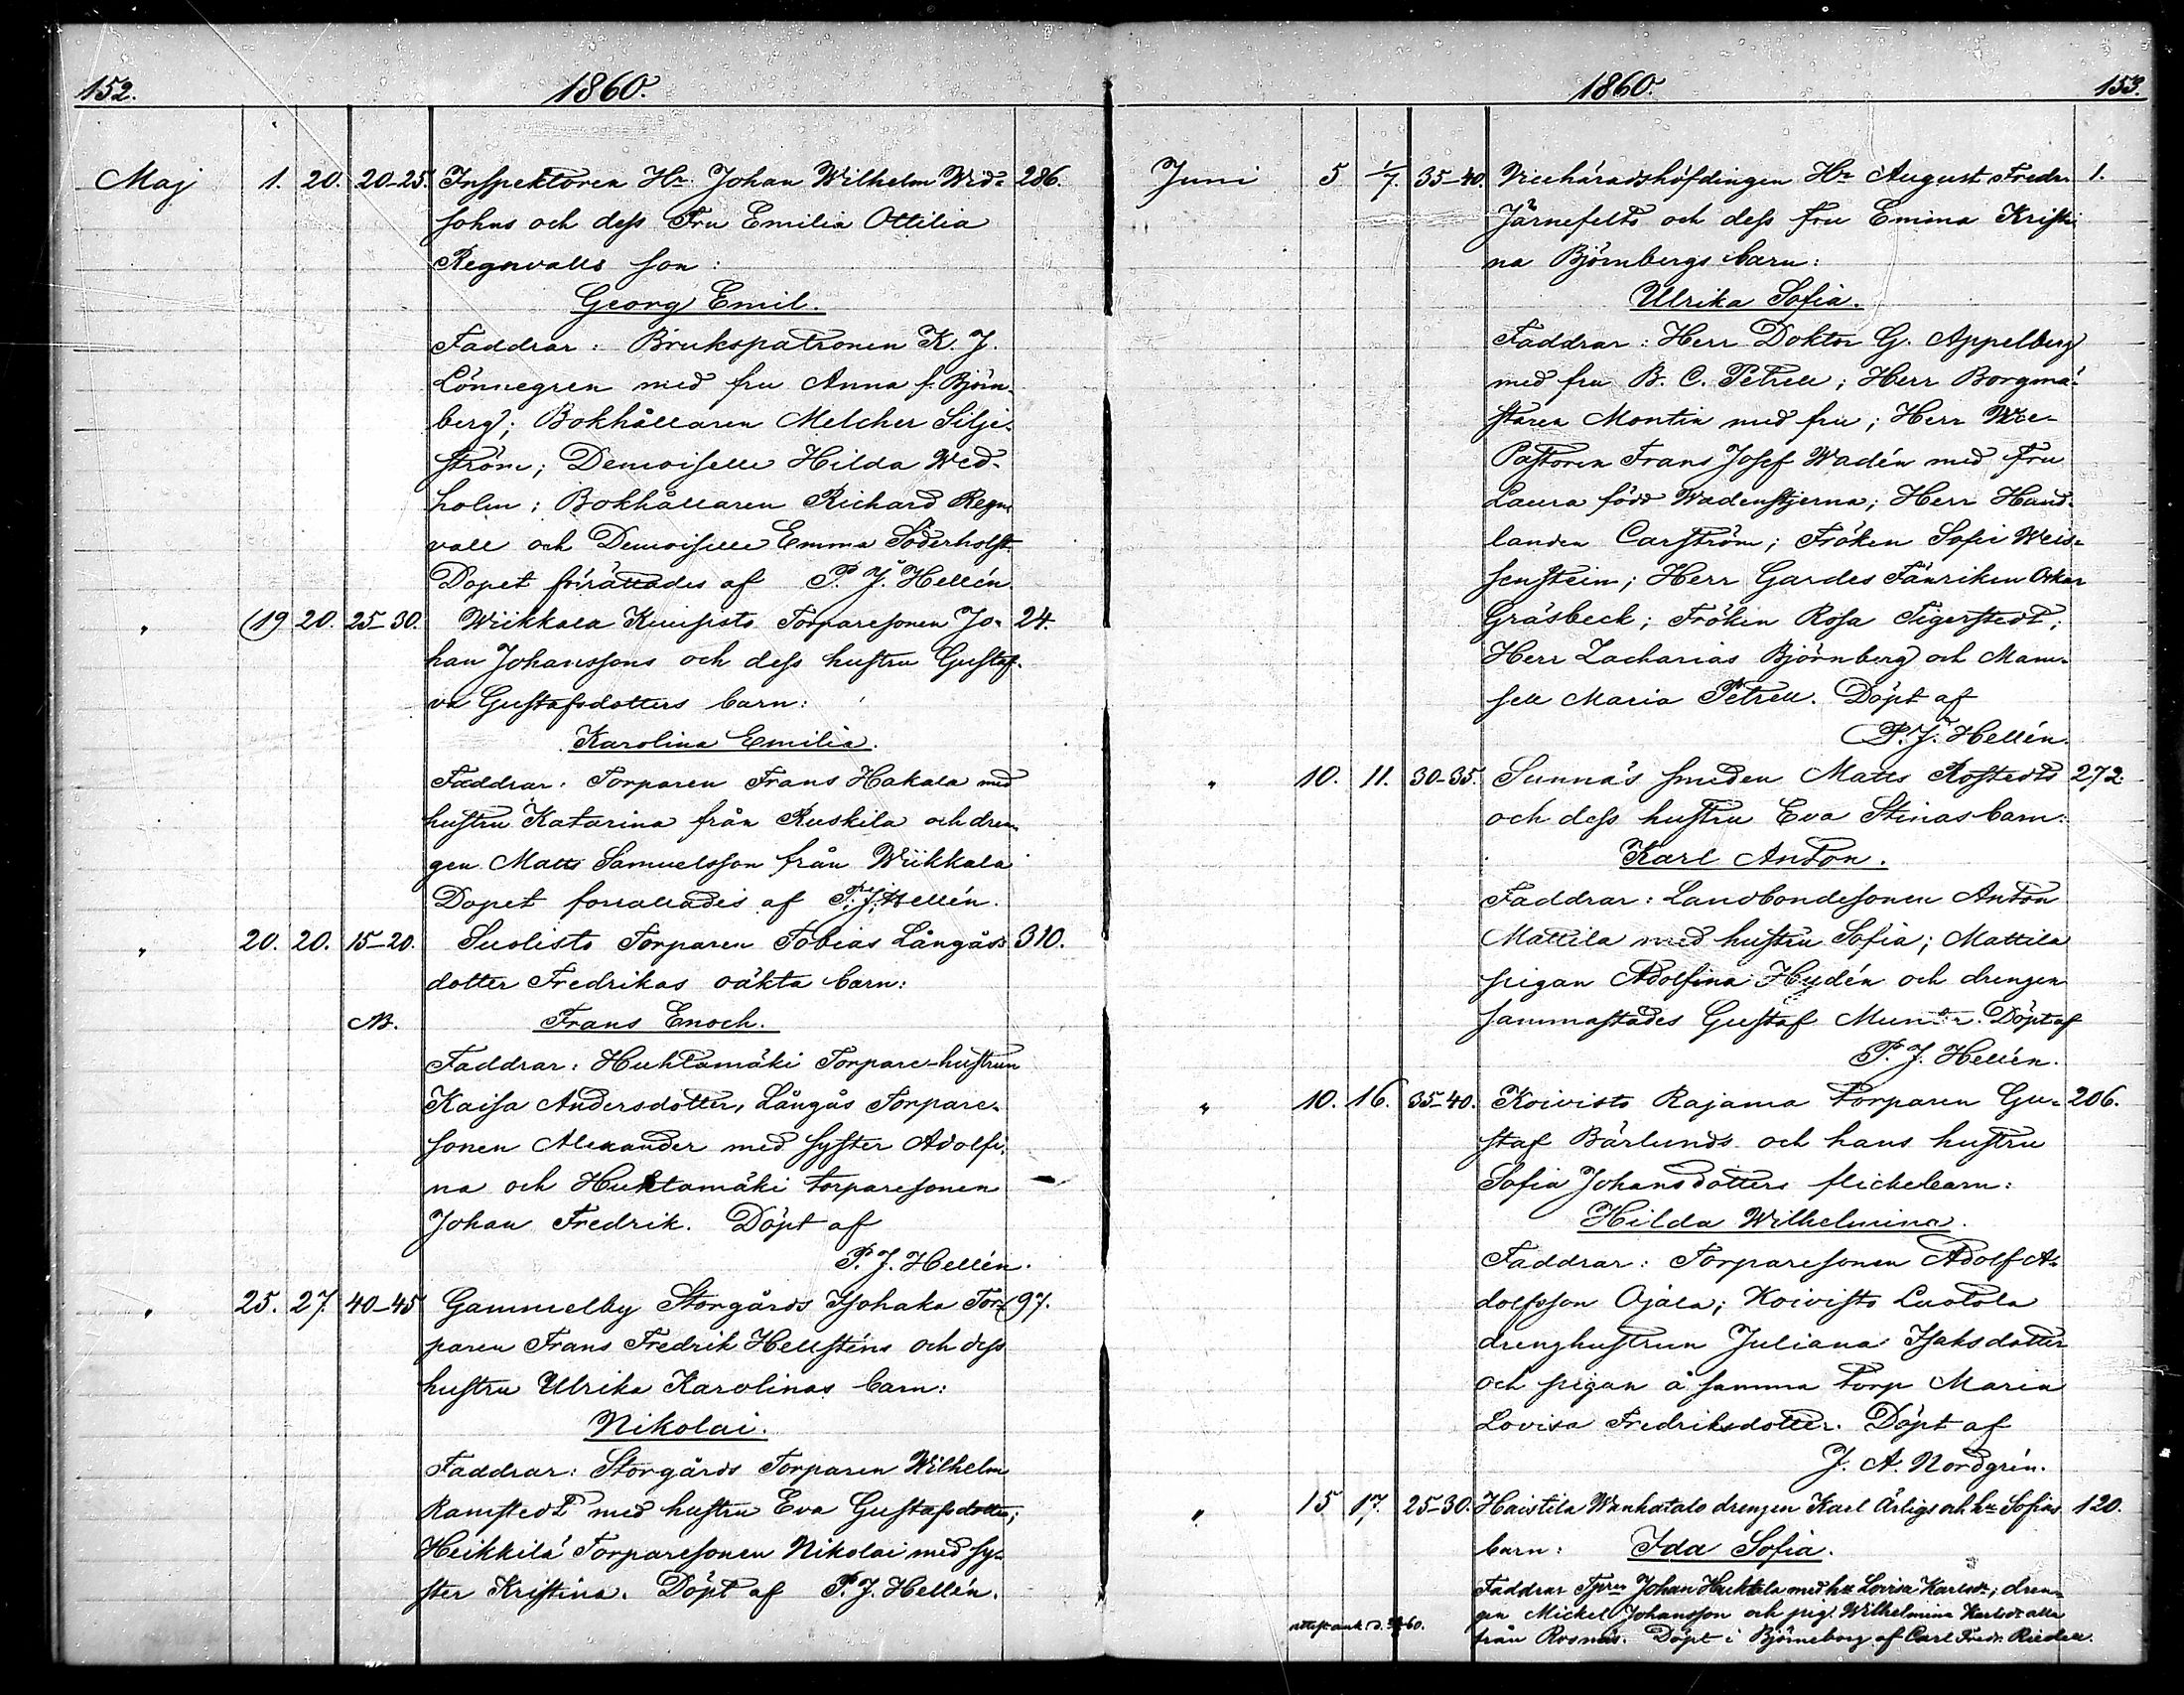 152. 1860.
Maj 1. 20. 20-25. Inspektoren Hr Johan Wilhelm Wid- 286.
sohns och dess Fru Emilia Ottilia
Regnvalls son:
Georg Emil.
Faddrar: Brukspatronen K. J.
Lönnegren med fru Anna f. Björn-
berg; Bokhållaren Melcher Silje-
ström; Demoiselle Hilda Wed-
holm; Bokhållaren Richard Regn-
vall och Demoiselle Emma Söderholst.
Dopet förrättades af P. J. Hellén.
" 19 20. 25-30. Wiikkala Torparesonen Jo- 24.
han Johanssons och dess hustru Gustaf-
va Gustafsdotters barn:
Karolina Emilia.
Faddrar: Torparen Frans Hakala med
hustru Katarina från Ruskila och dren-
gen Matts Samuelsson från Wiikkala
Dopet förrättades af P. J. Hellén.
" 20. 20. 15-20. Suolisto Torparen Tobias Långås 310.
dotter Fredrikas oäkta barn:
Frans Enoch.
Faddrar: Huhtamäki Torpare-hustrun
Kaisa Andersdotter, Långås Torpare-
sonen Alexander med syster Adolfi-
na och Huhtamäki torparesonen
Johan Fredrik. Döpt af
P. J. Hellén.
" 25. 27. 40-45 Gammelby Storgårds Isohaka Tor- 97.
paren Frans Fredrik Hellsténs och dess
hustru Ulrika Karolinas barn:
Nikolai.
Faddrar: Storgårds Torparen Wilhelm
Ramstedt med hustru Eva Gustafsdotter;
Heikkilä Torparesonen Nikolai med sy-
ster Kristina. Döpt af P. J. Hellén.
1860. 153.
Juni 5 1/7. 35-40. Vicehäradshöfdingen Hr August Fredr. 1.
Järnefelts och dess fru Emma Kristi
na Björnbergs barn:
Ulrika Sofia.
Faddrar: Herr Doktor G. Appelberg
med fru B. C. Petrell; Herr Borgmä-
staren Montin med fru; Herr Vice-
Pastoren Frans Josef Wadén med Fru
Laura född Wadenstjerna; Herr Hand-
landen Carström; Fröken Sofi Weis-
senstein; Herr Gardes Fänriken Oskar
Gräsbeck; Fröken Rosa Tigerstedt;
Herr Zacharias Björnberg och Mam-
sell Maria Petrell. Döpt af
P. J. Hellén.
" 10. 11. 30-35. Sunnäs smeden Matts Rostedts 272
och dess hustru Eva Stinas barn:
Karl Anton.
Faddrar: Landbondesonen Anton
Mattila med hustru Sofia; Mattila
pigan Adolfina Hydén och drengen
sammastädes Gustaf Döpt af
P. J. Hellén.
" 10. 16. 35-40. Koivisto Rajama Torparen Gu- 206.
staf Bärlunds och hans hustru
Sofia Johansdotters flickebarn:
Hilda Wilhelmina.
Faddrar: Torparesonen Adolf A-
dolfsson Ojala; Koivisto Luotola
drenghustrun Juliana Isaksdotter
och pigan å samma torp Maria
Lovisa Fredriksdotter. Döpt af
J. A. Nordgrén.
" 15 17. 25-30. Haistila Wanhatalo drengen Karl Ärligs och hu Sofias 120.
barn: Ida Sofia.
Faddrar Johan Huhtala med hu Lovisa Karlsdr; dren-
gen Mickel Johansson och pig. Wilhelmina Karlsdr alla
från Rosnäs. Döpt i Björneborg af Carl Fredr. Riedell.